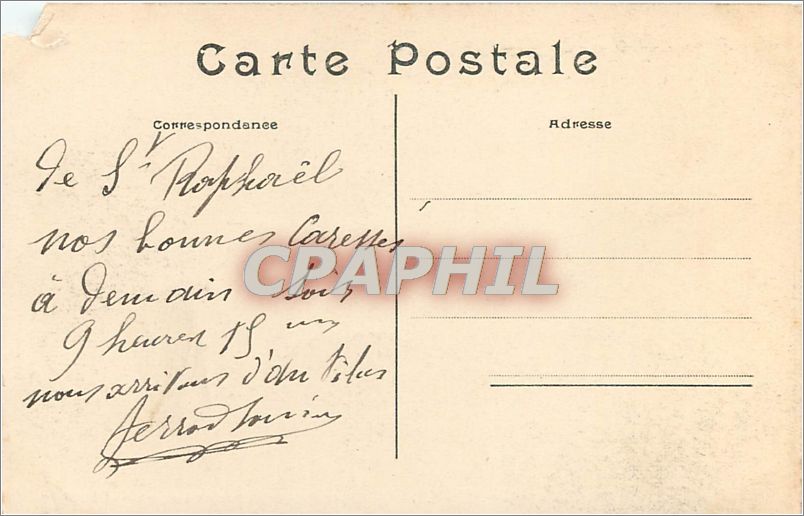 Carte Postale
Correspondance
Adresse
de St Raphaël
nos bonnes Caresses
à demain soir
9 heures 15
nous arrivons
CPAPHIL